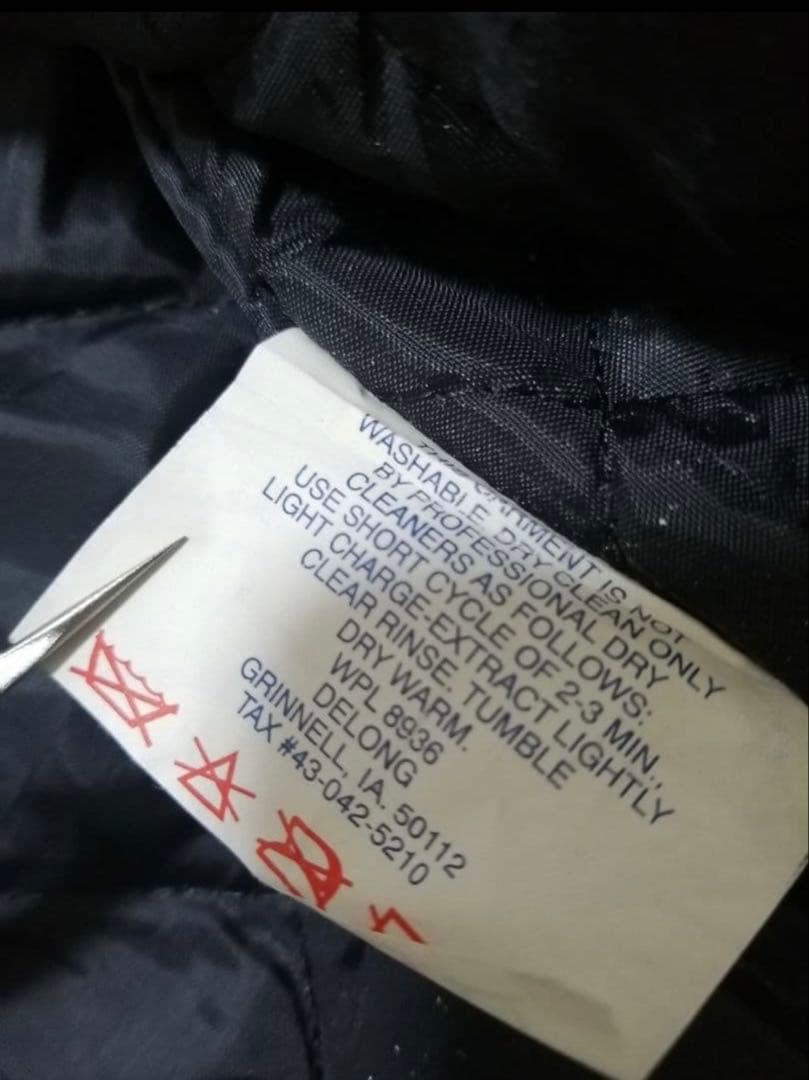 THIS GARMENT IS NOT
WASHABLE. DRY CLEAN ONLY
BY PROFESSIONAL DRY
CLEANERS AS FOLLOWS:
USE SHORT CYCLE OF 2-3 MIN.,
LIGHT CHARGE-EXTRACT LIGHTLY
CLEAR RINSE. TUMBLE
DRY WARM.
WPL 8936
DELONG
GRINNELL, IA. 50112
TAX #43-042-5210